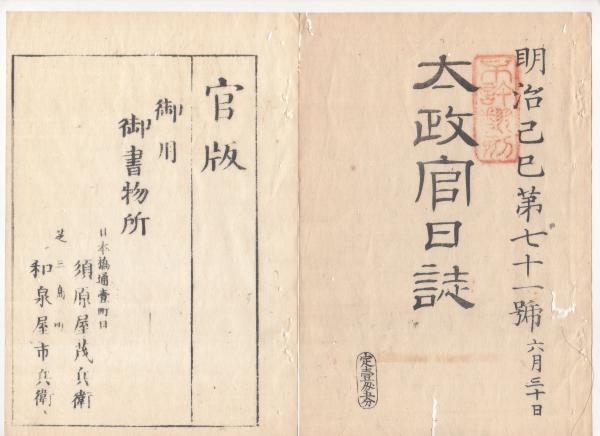 明治己巳第七十一號 六月三十日
太政官日誌
不許翻刻
官版
御用
御書物所
日本橋通壹町目
須原屋茂兵衛
芝三島町
和泉屋市兵衛